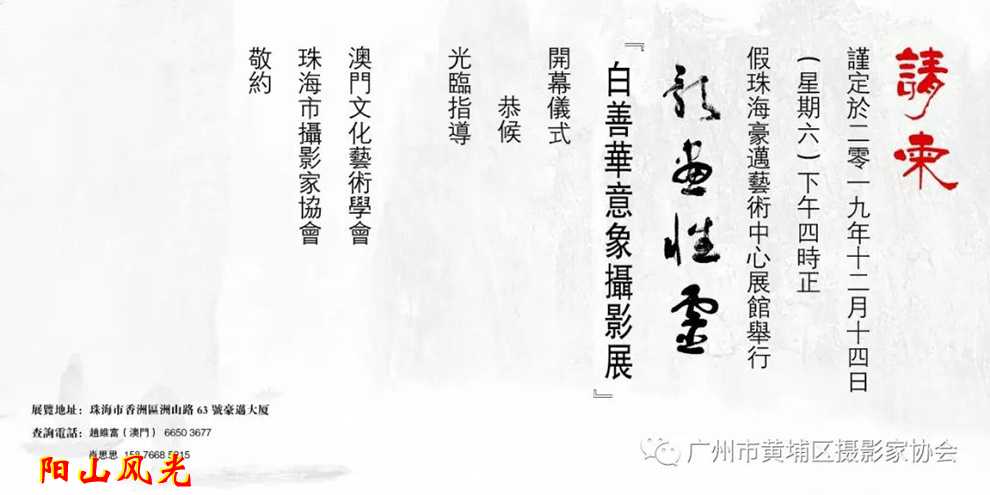 請柬
謹定於二零一九年十二月十四日
(星期六)下午四時正
假珠海豪邁藝術中心展館舉行
影畫性靈
『白善華意象攝影展』
開幕儀式
恭候
光臨指導
澳門文化藝術學會
珠海市攝影家協會
敬約
展覽地址：珠海市香洲區洲山路 63 號豪邁大厦
查詢電話：趙維富（澳門） 6650 3677
肖思思 7668
阳山风光
广州市黄埔区摄影家协会